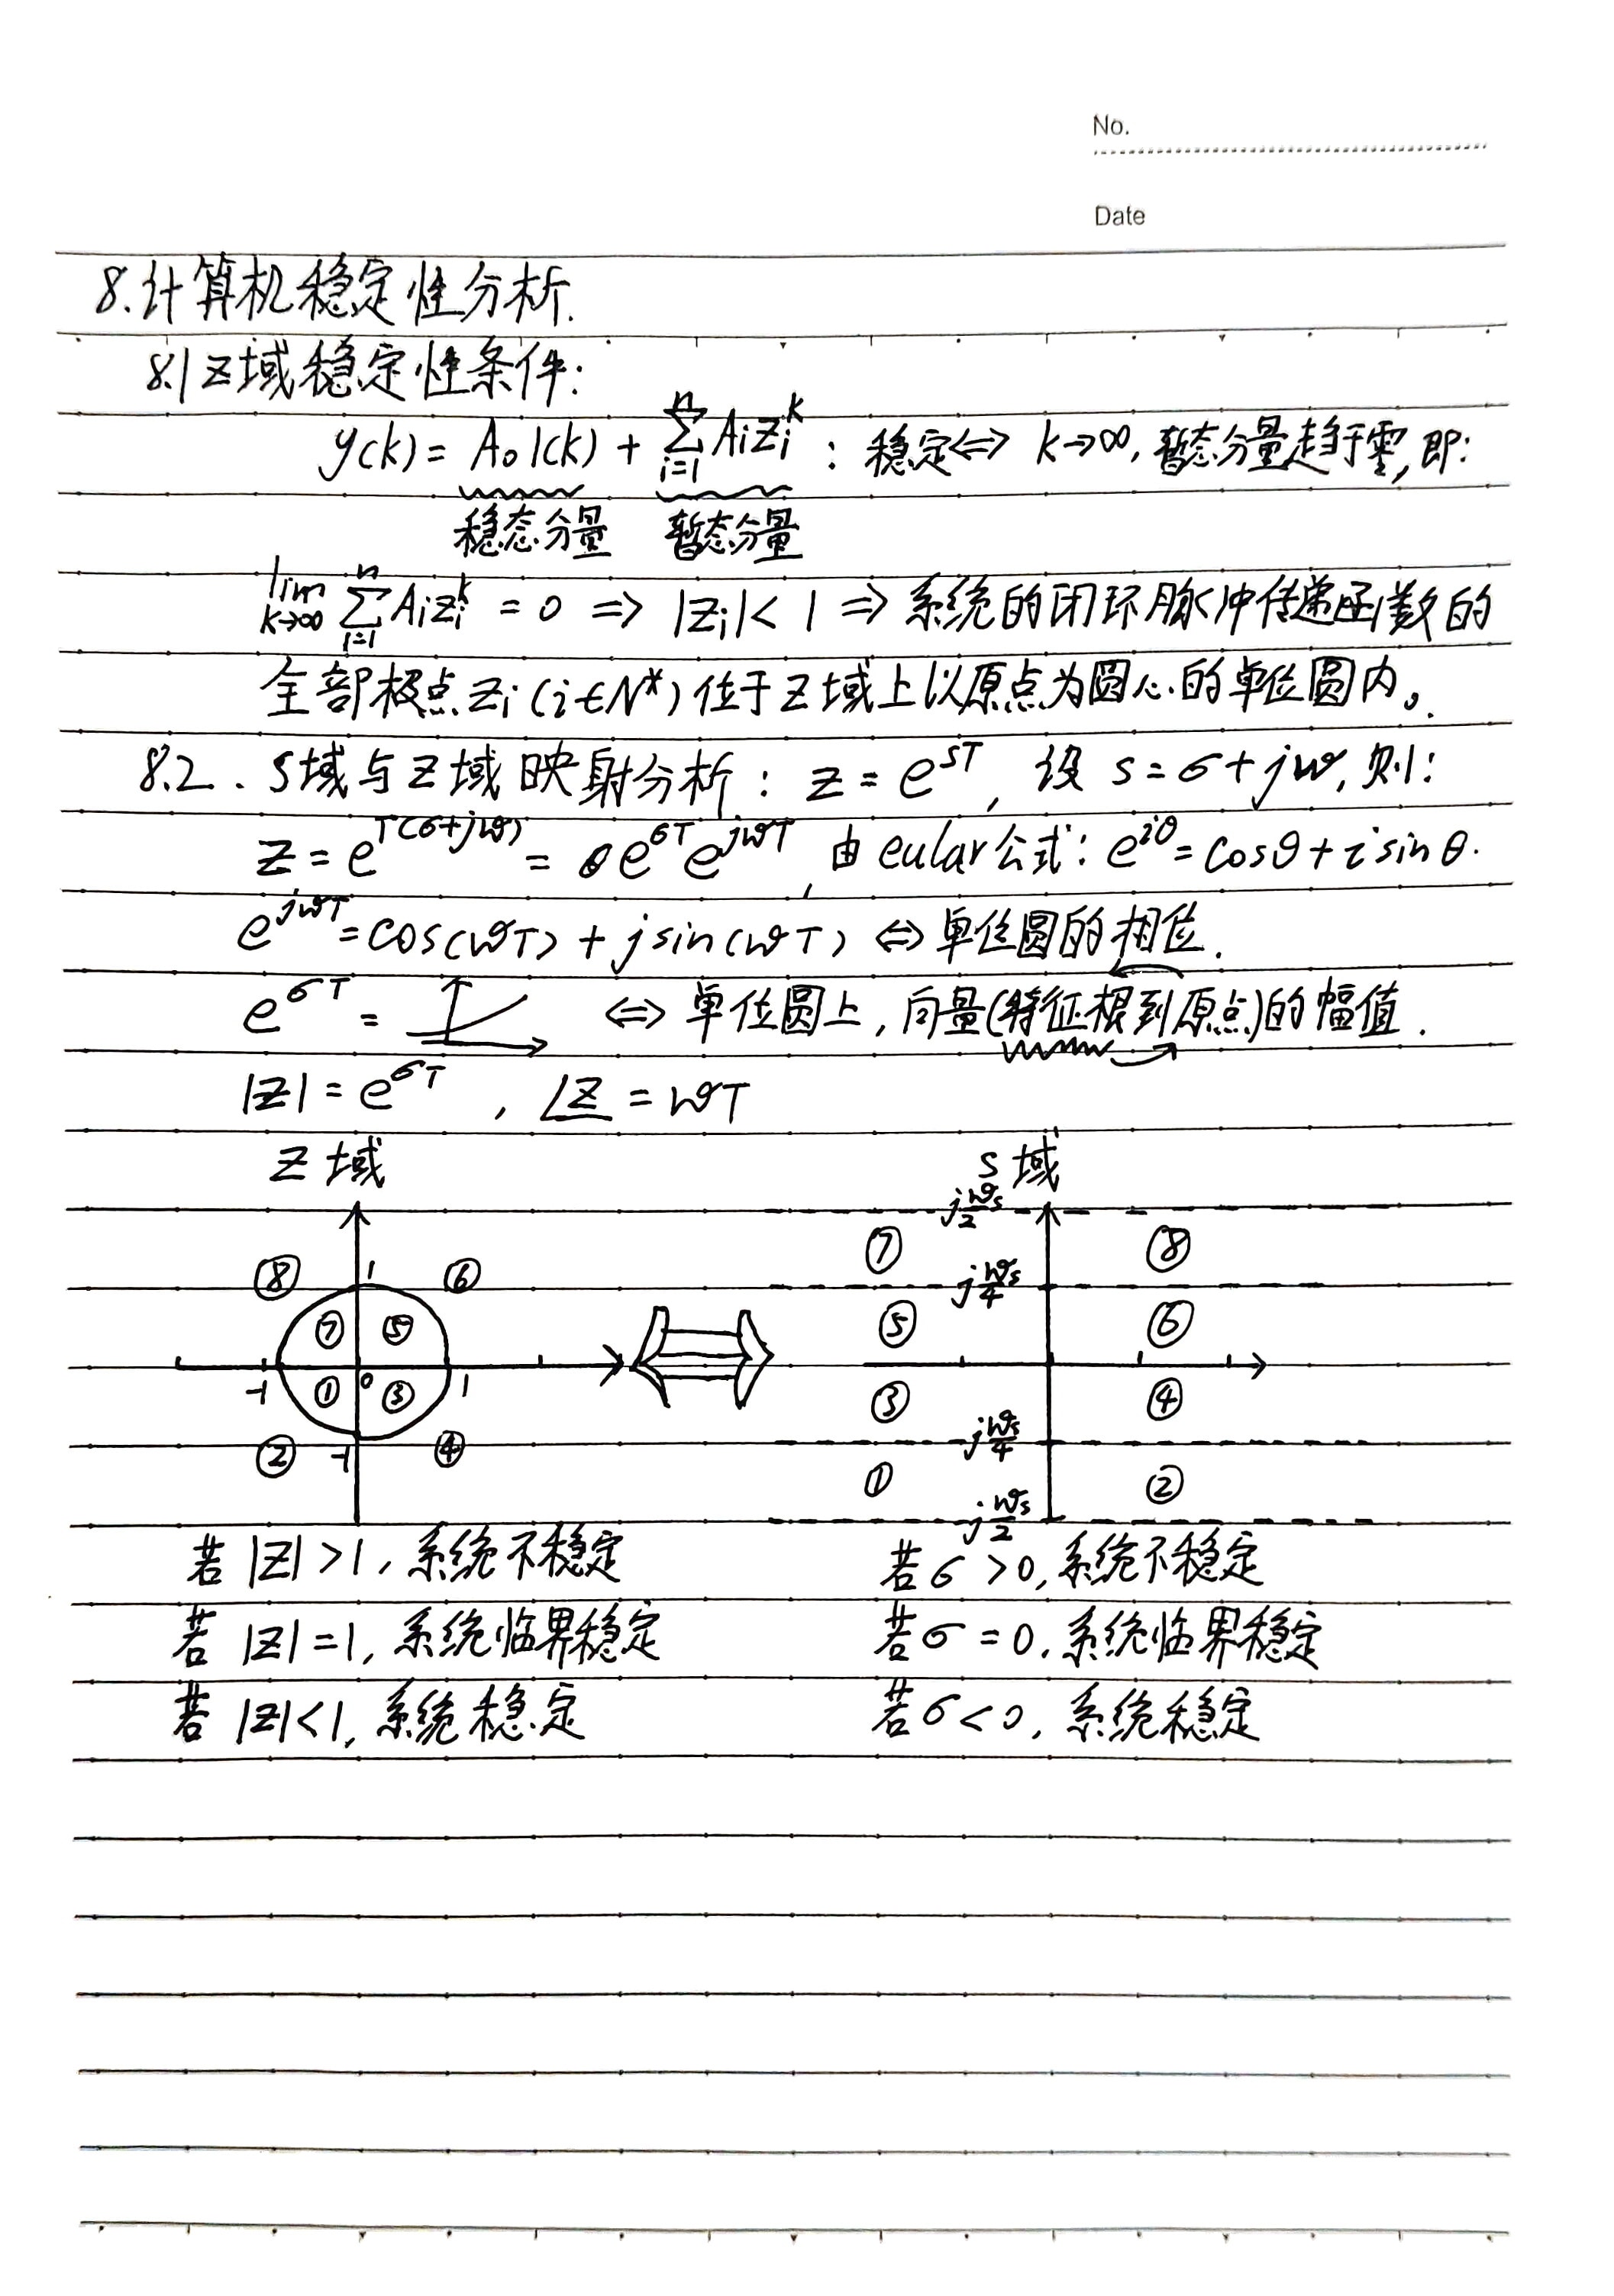 No.
Date
8.计算机稳定性分析.
8.1 Z域稳定性条件:
y(k) = A₀1(k) + ∑ᵢ₌₁ⁿ AᵢZᵢᵏ : 稳定⇔ k→∞, 暂态分量趋于零, 即:
稳态分量 暂态分量
lim k→∞ ∑ᵢ₌₁ⁿ AᵢZᵢᵏ = 0 ⇒ |Zᵢ| < 1 ⇒ 系统的闭环脉冲传递函数的
全部极点Zᵢ(i∈N*)位于Z域上以原点为圆心的单位圆内。
8.2. S域与Z域映射分析: Z = e^{sT}, 设 s = σ + jω, 则:
Z = e^{T(σ+jω)} = e^{σT} e^{jωT}, 由eular公式: e^{iθ} = cosθ + i sinθ.
e^{jωT} = cos(ωT) + j sin(ωT) ⇔ 单位圆的相位.
e^{σT} = ⇔ 单位圆上, 向量(特征根到原点)的幅值.
|Z| = e^{σT}, ∠Z = ωT
Z域 S域
jωs/2
⑦ ⑧
⑧ 1 ⑥ jωs/4
⑦ ⑤ ⑤ ⑥
-1 ① 0 ③ 1 ③ ④
② -1 ④ -jωs/4
① ②
-jωs/2
若 |Z| > 1, 系统不稳定 若 σ > 0, 系统不稳定
若 |Z| = 1, 系统临界稳定 若 σ = 0, 系统临界稳定
若 |Z| < 1, 系统稳定 若 σ < 0, 系统稳定